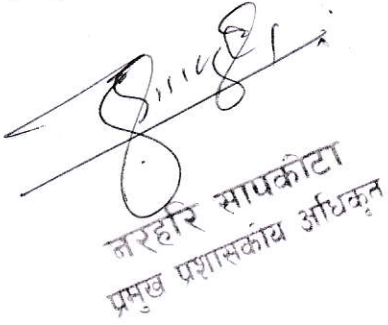 नरहरि सापकोटा
प्रमुख प्रशासकीय अधिकृत